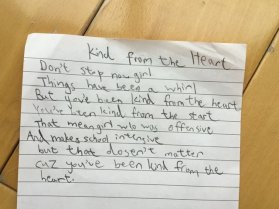 Kind from the Heart
Don't stop now girl
Things have been a whirl
But you've been kind from the heart
You've been kind from the start
That mean girl who was offensive
And makes school intensive
but that doesn't matter
caz you've been kind from the
heart.